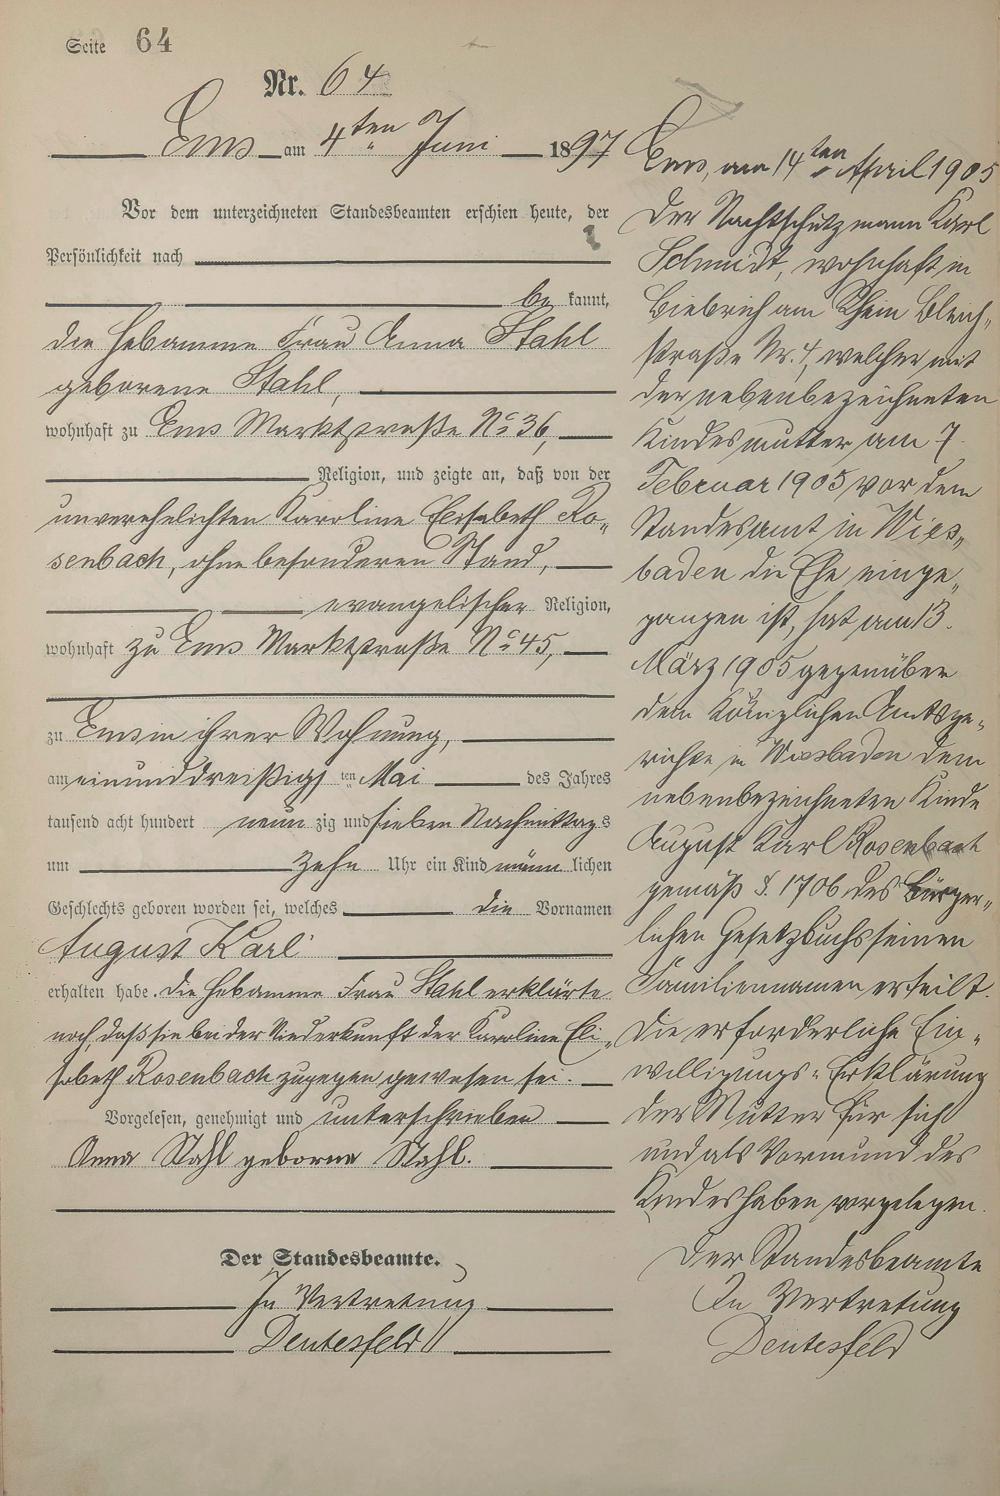 Seite 64
Nr. 64
Ems am 4ten Juni 1897
Vor dem unterzeichneten Standesbeamten erschien heute, der
Persönlichkeit nach
be kannt,
die Hebamme Frau Anna Stahl
geborene Stahl,
wohnhaft zu Ems Marktstraße No 36,
Religion, und zeigte an, daß von der
unverehelichten Karoline Elisabeth Ro„
senbach, ohne besonderen Stand,
evangelischer Religion,
wohnhaft zu Ems Marktstraße No 45,
zu Ems in ihrer Wohnung,
am einunddreißigsten Mai des Jahres
tausend acht hundert neun zig und sieben Nachmittags
um zehn Uhr ein Kind männ lichen
Geschlechts geboren worden sei, welches die Vornamen
August Karl
erhalten habe. Die Hebamme Frau Stahl erklärte
noch, daß sie bei der Niederkunft der Karoline Eli„
sabeth Rosenbach zugegen gewesen sei.
Vorgelesen, genehmigt und unterschrieben
Anna Stahl geborne Stahl.
Der Standesbeamte.
In Vertretung
Deutesfeld
Ems, am 14ten April 1905
Der Nachtschutzmann Karl
Schmidt, wohnhaft in
Biebrich am Rhein Bleich„
straße Nr. 4, welcher mit
der nebenbezeichneten
Kindesmutter am 7.
Februar 1905 vor dem
Standesamt in Wies„
baden die Ehe einge„
gangen ist, hat am 13.
März 1905 gegenüber
dem Königlichen Amtsge„
richte in Wiesbaden dem
nebenbezeichneten Kinde
August Karl Rosenbach
gemäß §. 1706 des Bürger„
lichen Gesetzbuchs seinen
Familiennamen erteilt.
Die erforderliche Ein„
willigungs-Erklärung
der Mutter für sich
und als Vormund des
Kindes haben vorgelegen.
Der Standesbeamte
In Vertretung
Deutesfeld